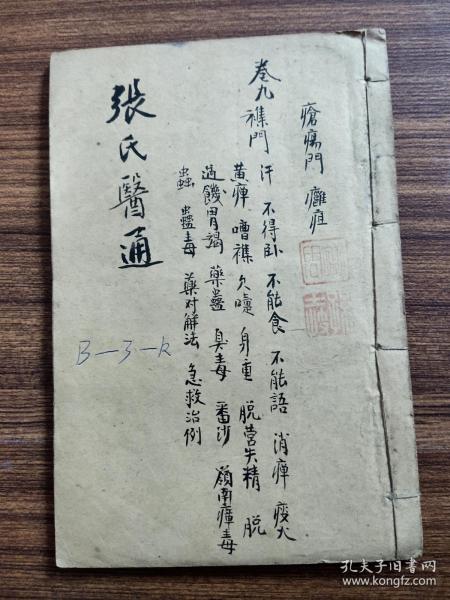 瘡瘍門 癰疽
卷九 襍門 汗 不得臥 不能食 不能語 消癉 痿火
黃癉 嘈襍 欠嚏 身重 脫營失精 脫
過饑胃竭 藥蠱 臭毒 番沙 嶺南瘴毒
蟲 蠱毒 藥对解法 急救治例
張氏醫通
B-3-R
孔夫子旧书网
www.kongfz.com